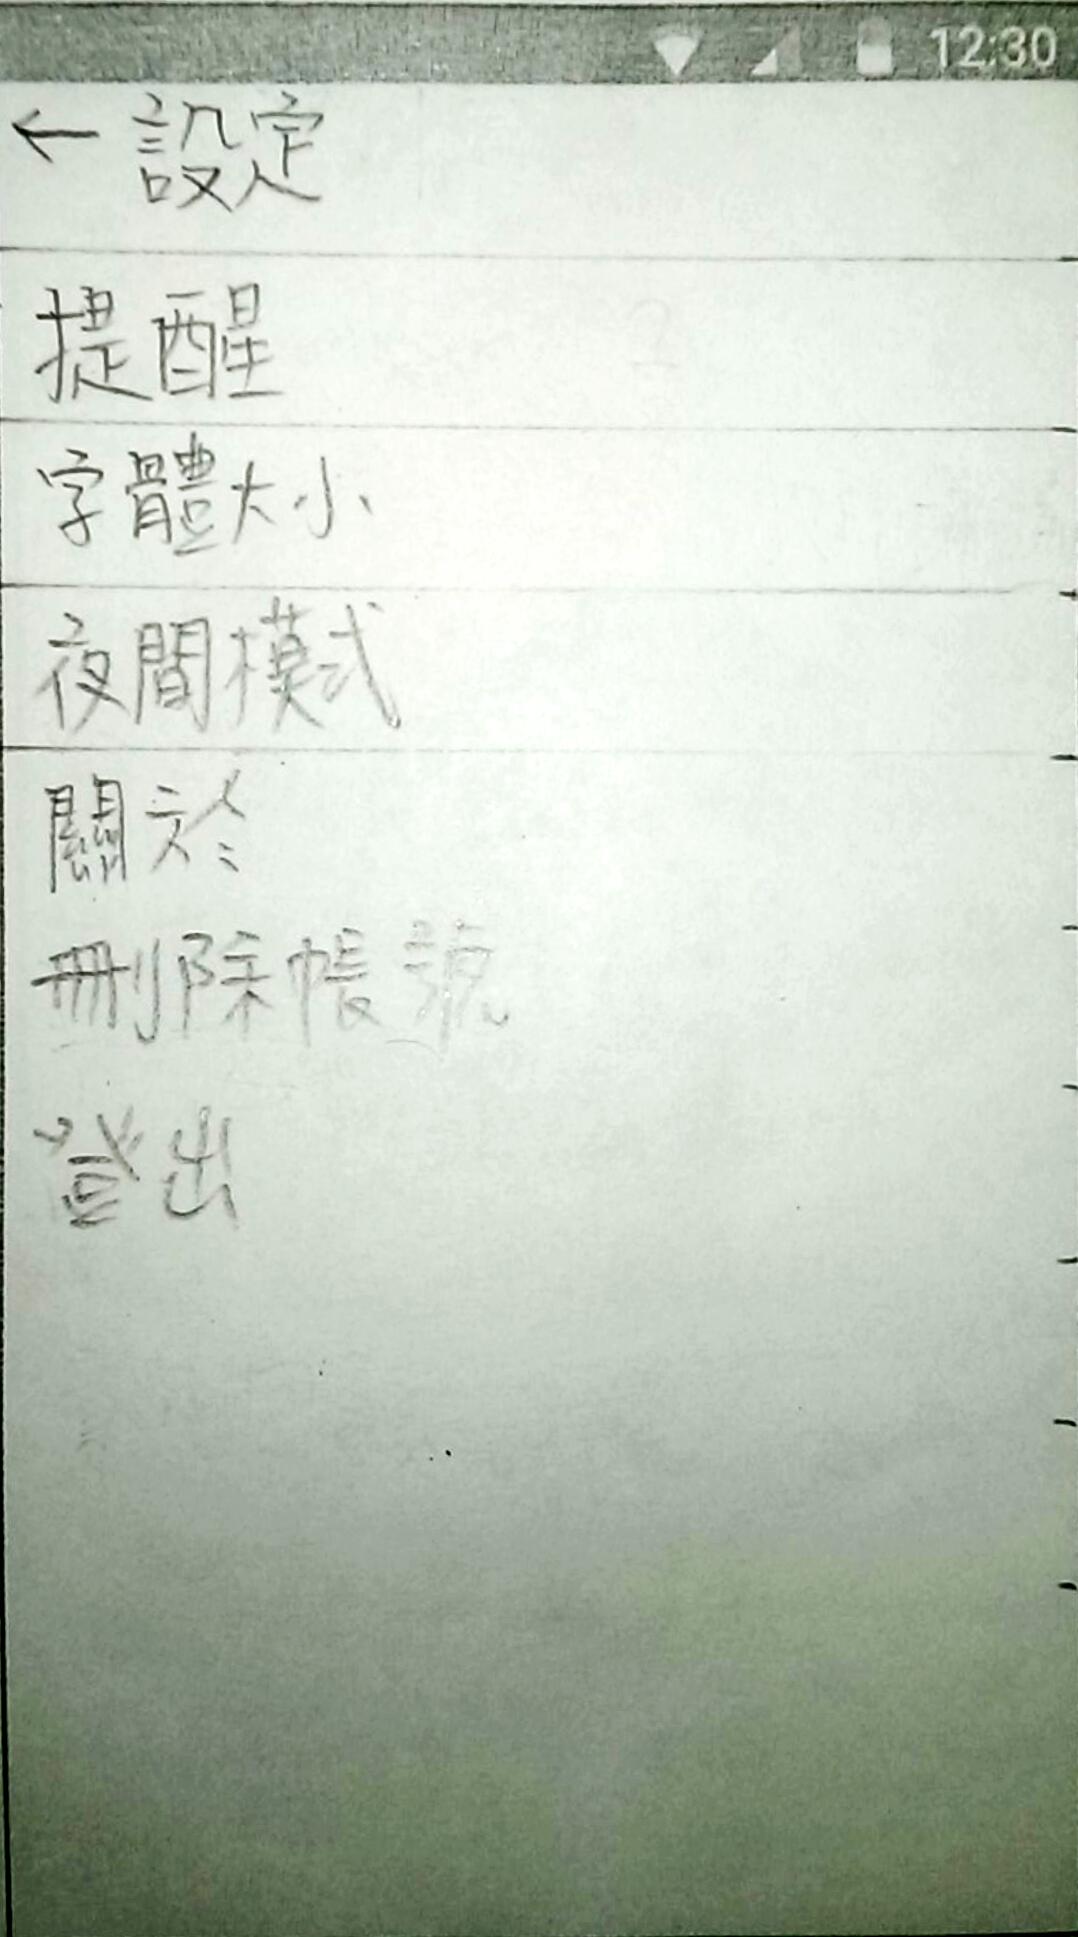 12:30
← 設定
提醒
字體大小
夜間模式
關於
刪除帳號
登出